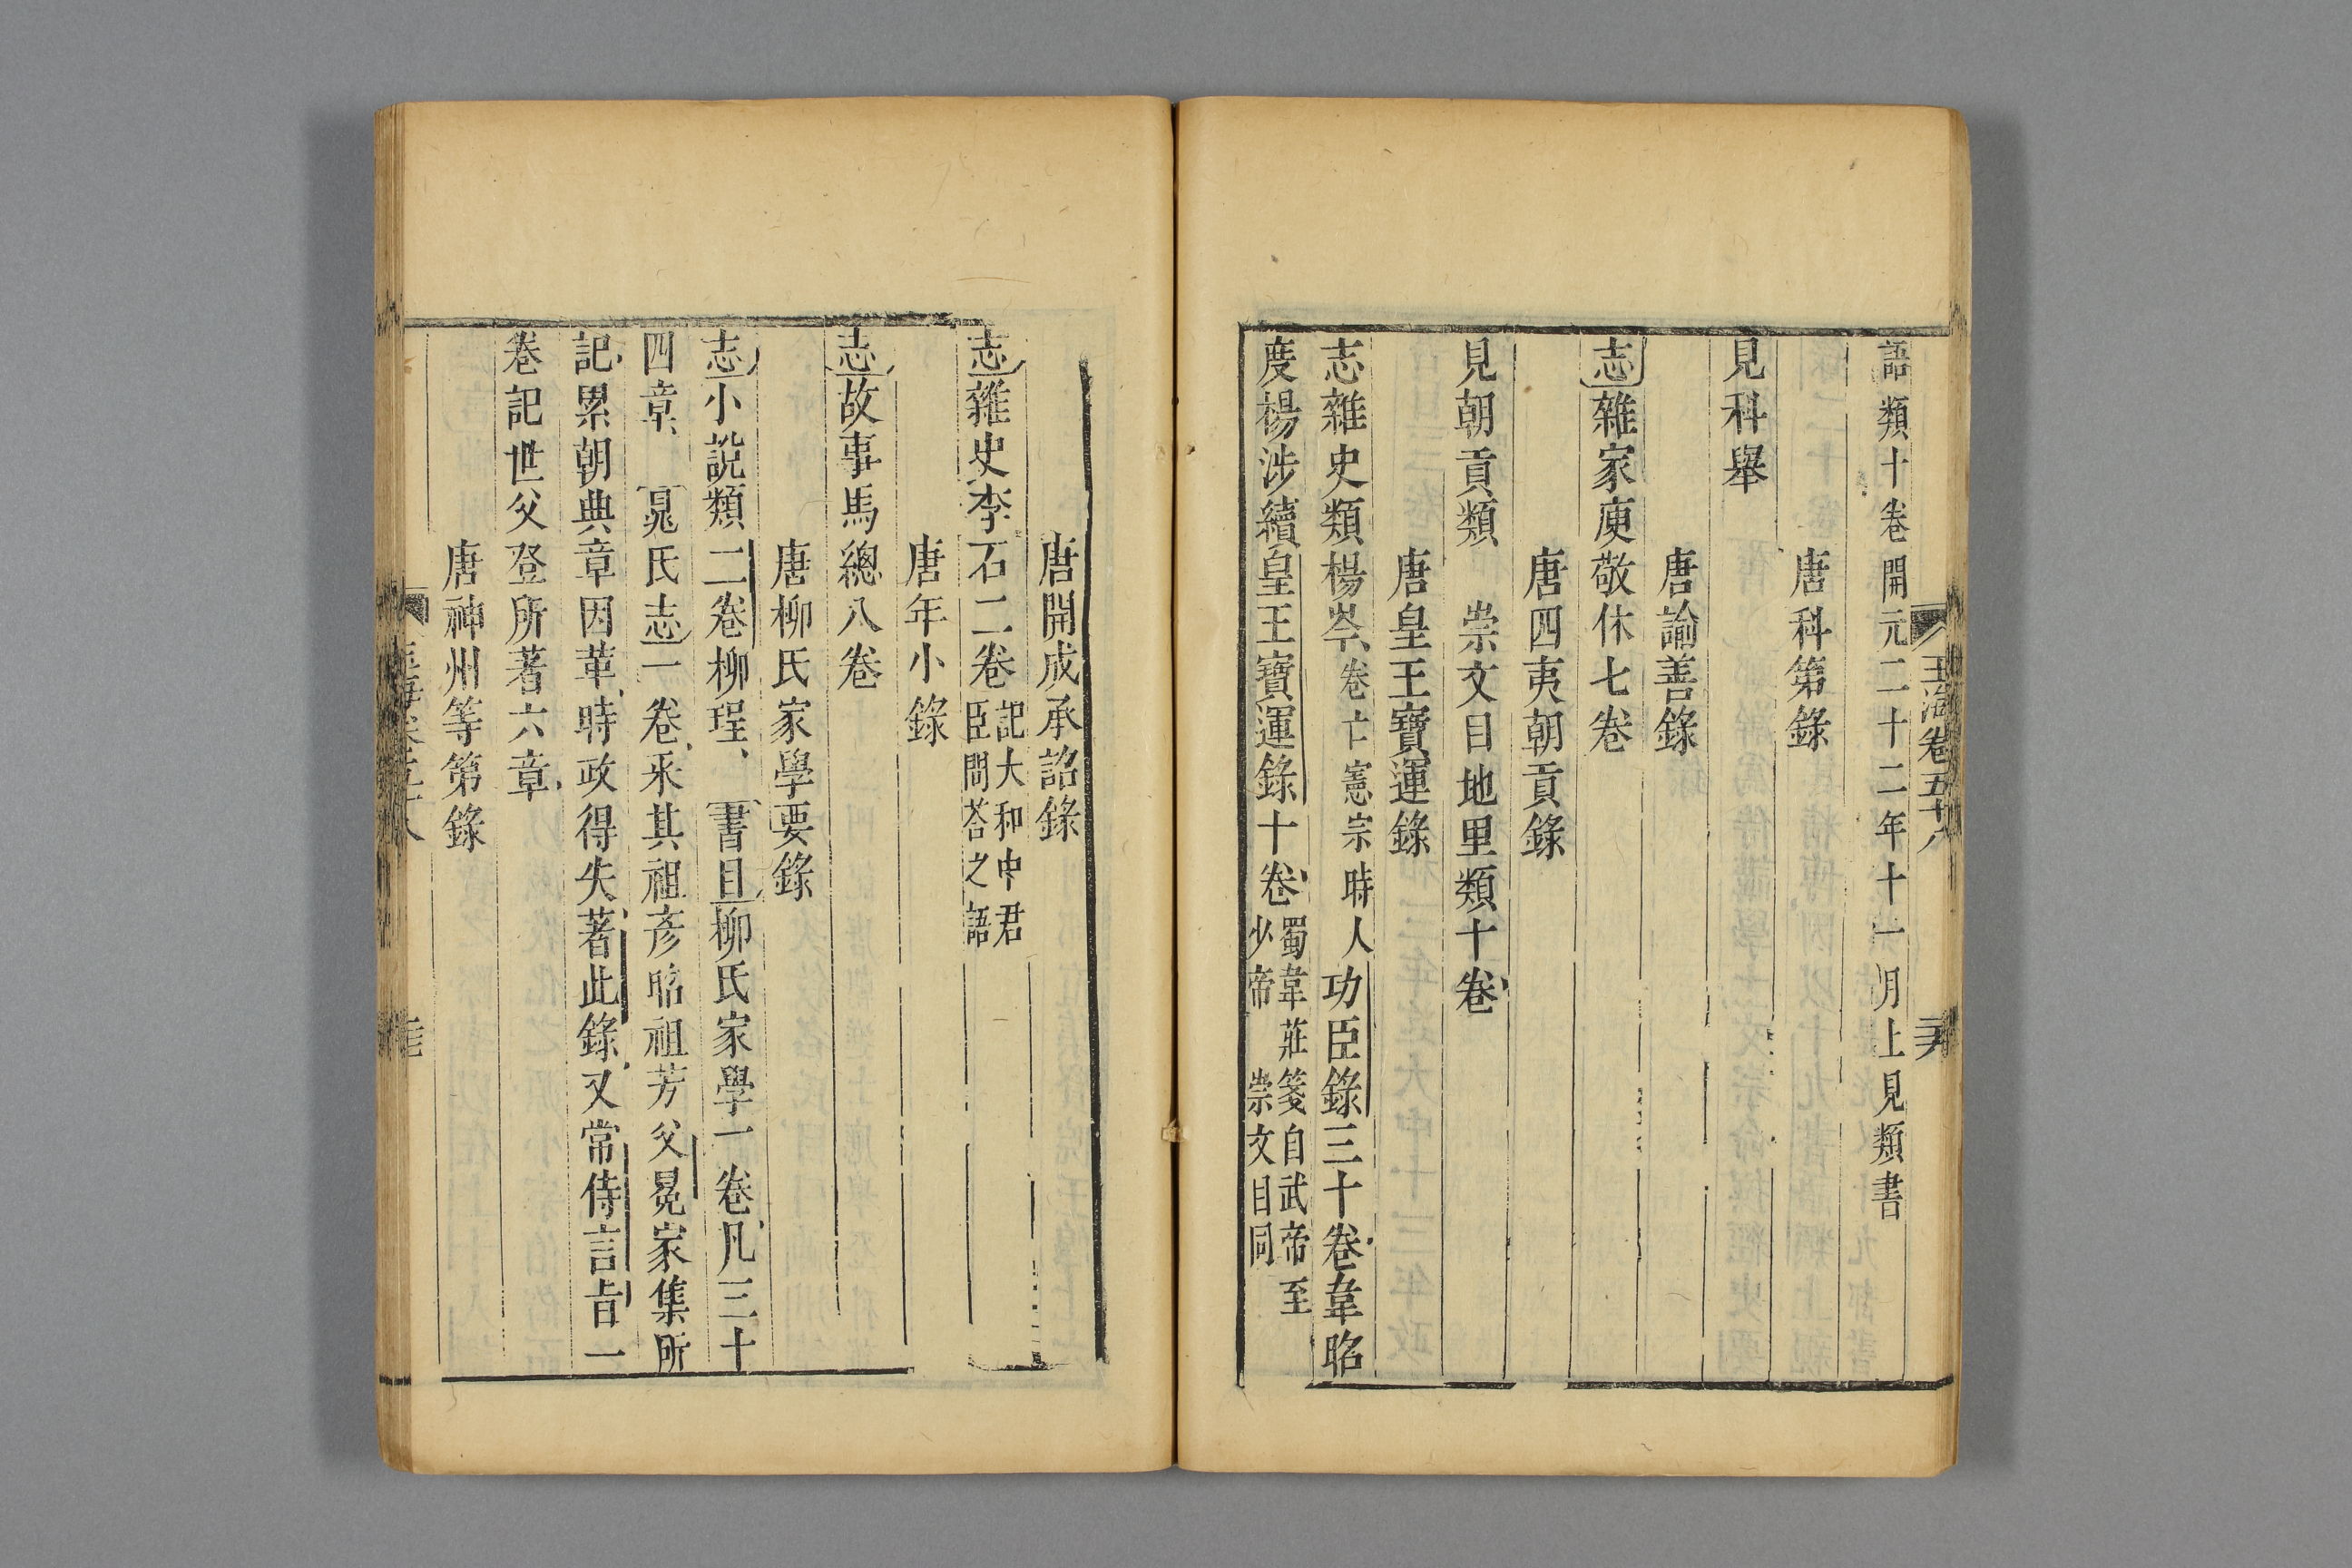 玉海卷五十八
語類十卷開元二十二年十一月上見類書
唐科第錄
見科舉
唐諭善錄
志雜家庾敬休七卷
唐四夷朝貢錄
見朝貢類 崇文目地里類十卷
唐皇王寶運錄
志雜史類楊岑卷亡憲宗時人功臣錄三十卷韋昭
度楊涉續皇王寶運錄十卷蜀韋莊箋自武帝至少帝 崇文目同
唐開成承詔錄
志雜史李石二卷記大和中君臣問荅之語
唐年小錄
志故事馬總八卷
唐柳氏家學要錄
志小說類二卷柳珵 書目柳氏家學一卷凡三十
四章 晁氏志一卷采其祖彥昭祖芳父冕家集所
記累朝典章因革時政得失著此錄又常侍言旨一
卷記世父登所著六章
唐神州等第錄